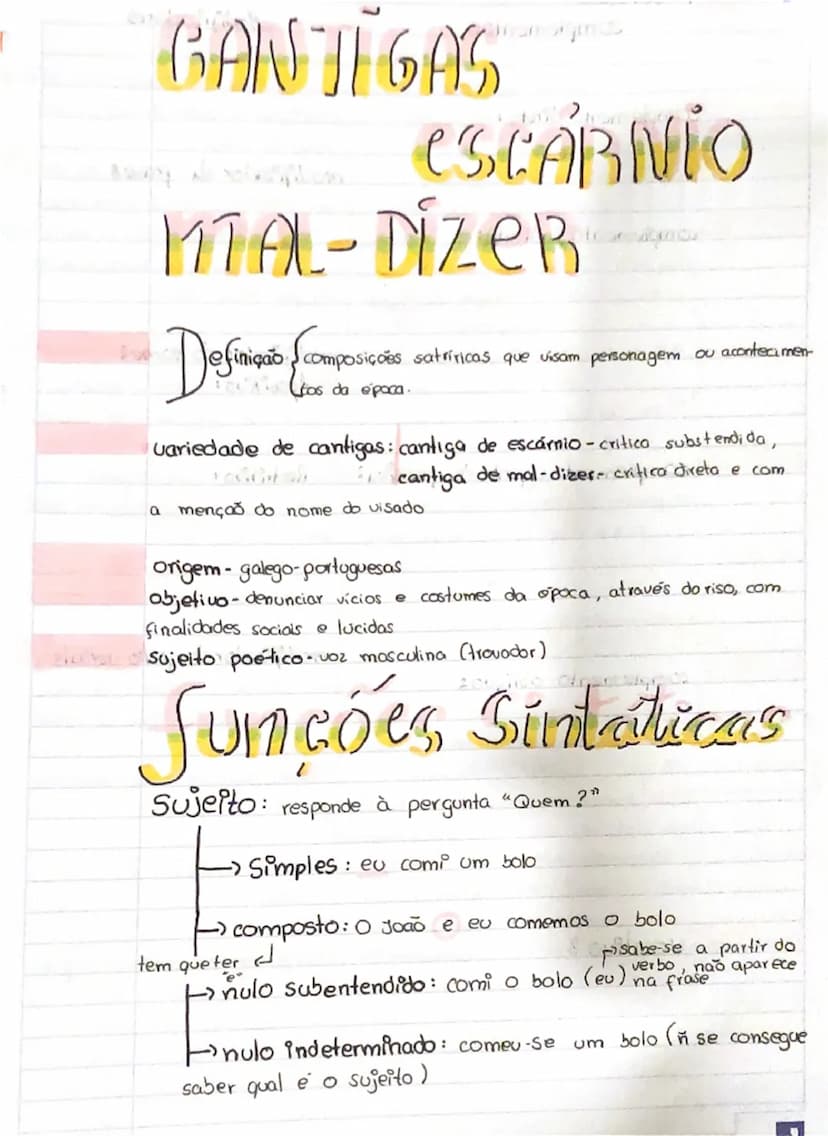 CANTIGAS
ESCÁRNIO
MAL-DIZER
Definição {composições satríricas que visam personagem ou acontecimen-
tos da época.
variedade de cantigas: cantiga de escárnio - critica substendida,
cantiga de mal-dizer - critica direto e com
a menção do nome do visado
origem - galego-portuguesas
objetivo - denunciar vícios e costumes da época, através do riso, com
finalidades sociais e lucidas
sujeito poético - voz masculina (trovador)
funções Sintáticas
Sujeito: responde à pergunta "Quem?"
→ Simples: eu comi um bolo
→ composto: O João e eu comemos o bolo
tem que ter ↲
"e"
→ sabe-se a partir do
verbo, não aparece
na frase
→ nulo subentendido: comi o bolo (eu)
→ nulo indeterminado: comeu-se um bolo (ñ se consegue
saber qual é o sujeito)